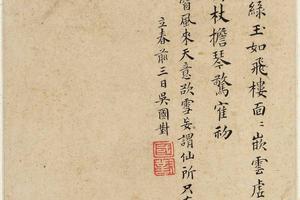 綠玉如飛樓面面嵌雲虛
杖擔琴驚寉初
宵風來天意欲雪妄謂仙所只在
立春前三日吳國對